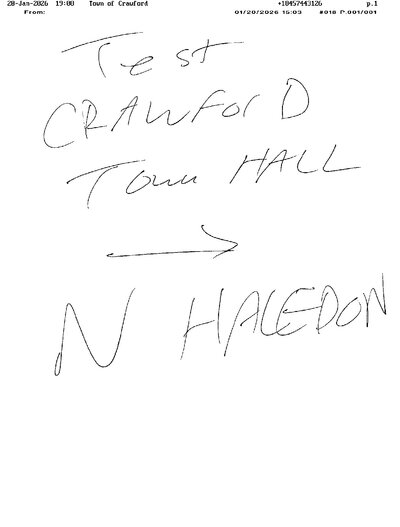 20-Jan-2026 19:08 Town of Crawford +18457443126 p.1
From: 01/20/2026 15:03 #018 P.001/001
Test
CRAWFORD
Town HALL
→
N HALEDON